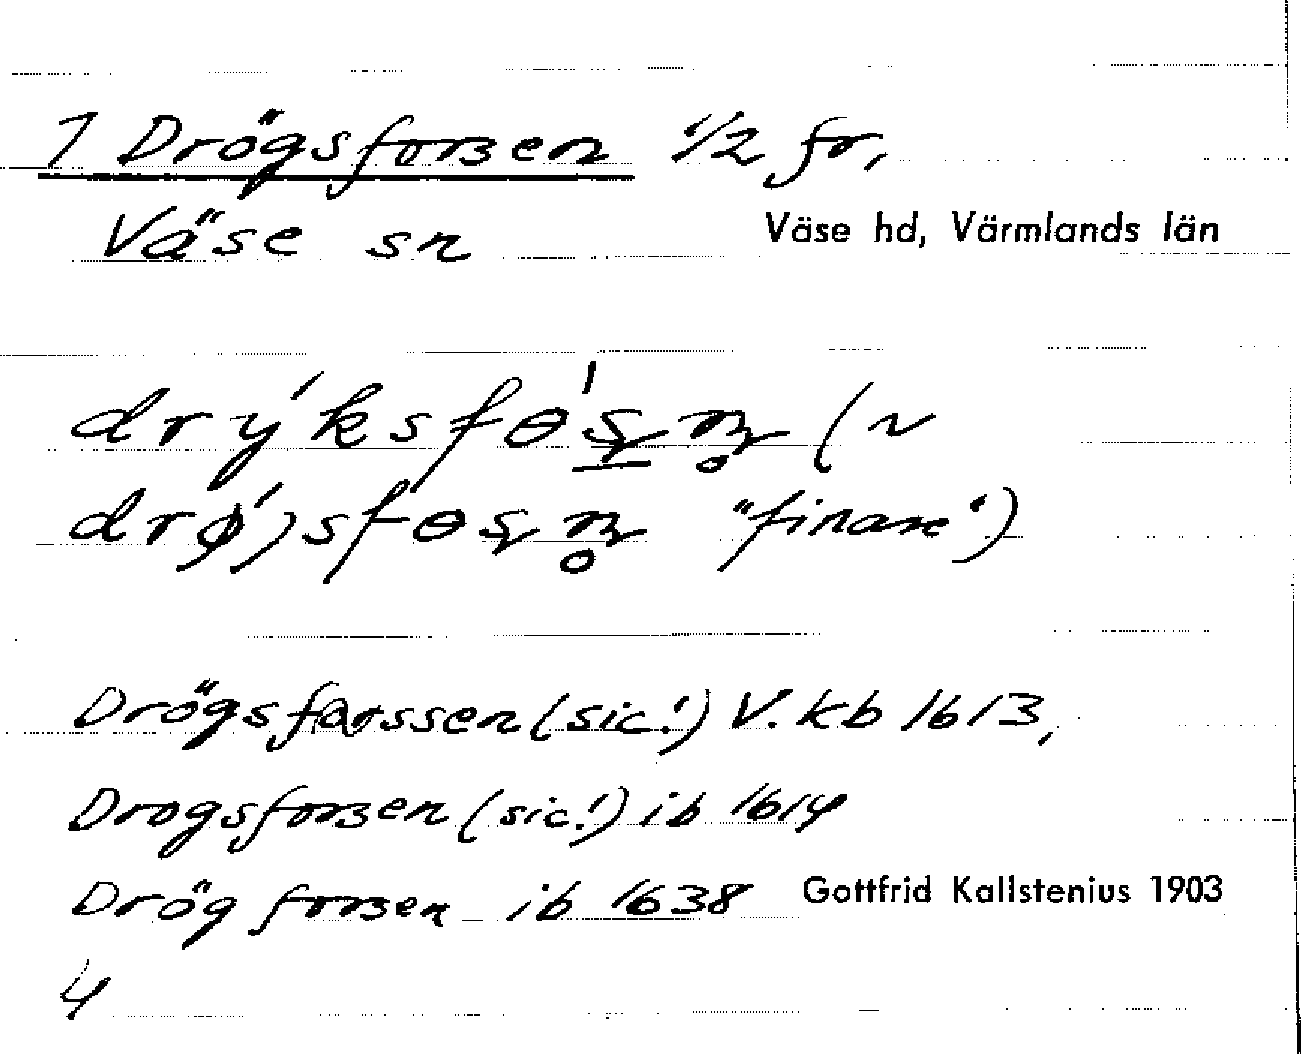 1 Drögsforsen 1/2 fr,
Väse sn Väse hd, Värmlands län
drýksfɵ́ꞩn̥ (~
drǿjsfɵꞩn̥ "finare")
Drögsfarssen (sic!) V. kb 1613,
Drogsforsen (sic!) ib 1614
Drög forsen ib 1638 Gottfrid Kallstenius 1903
4